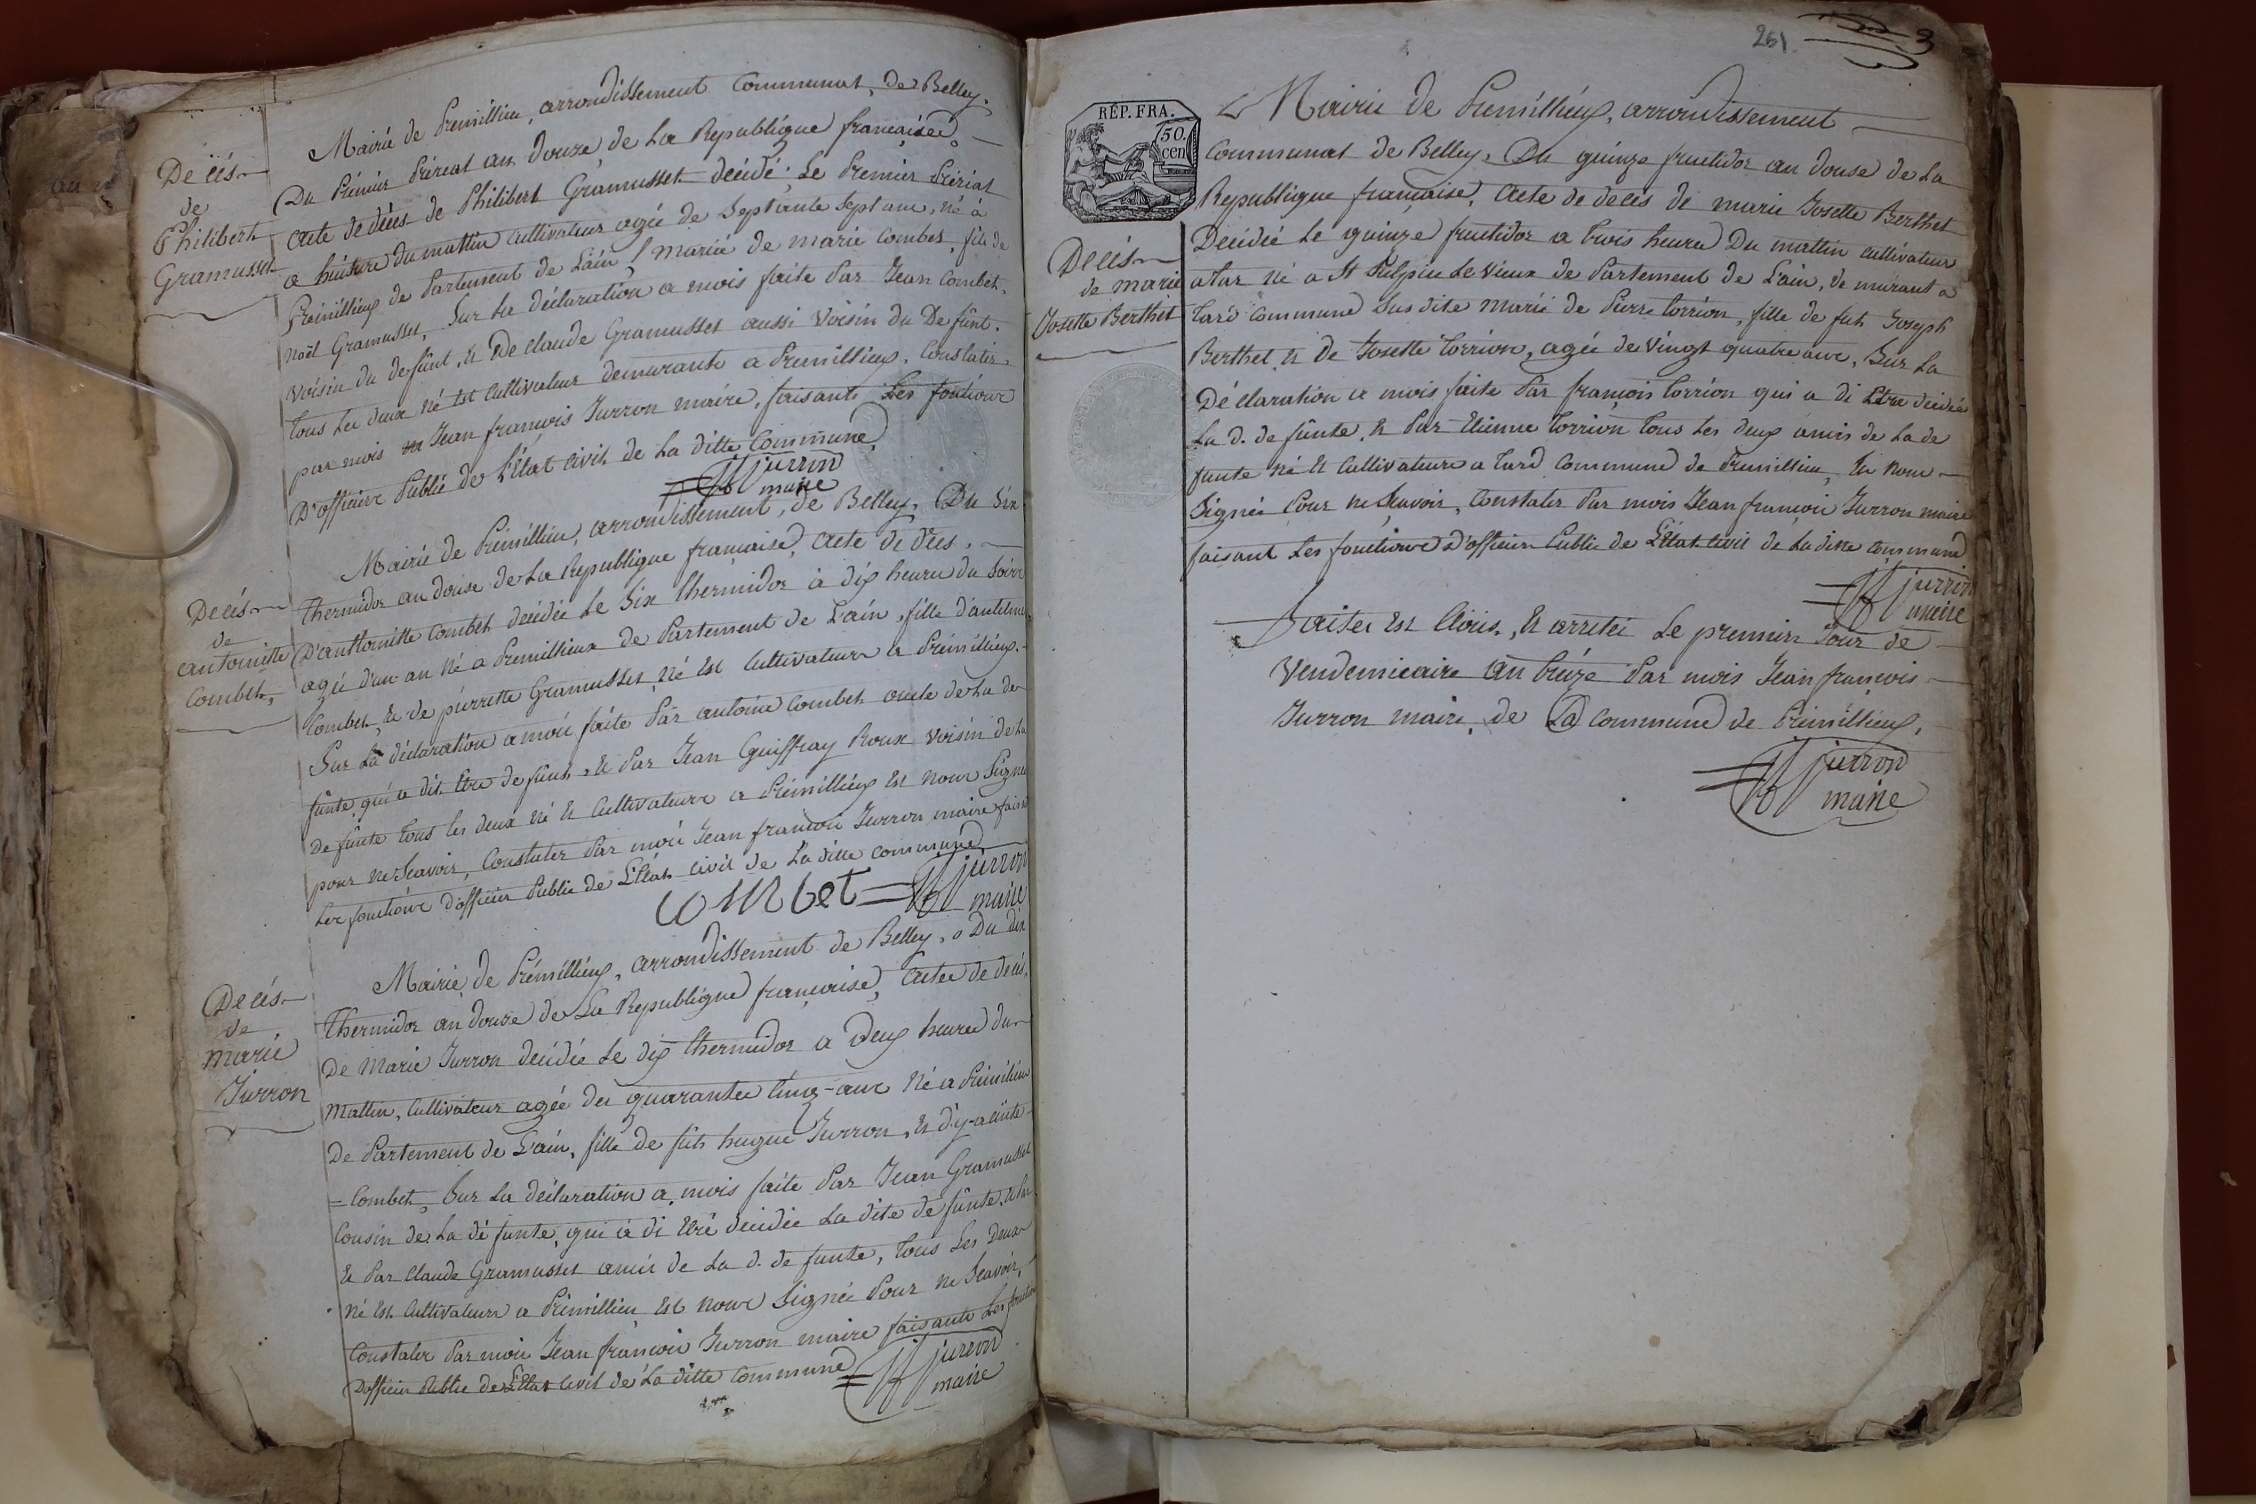 Decés
de
Philibert
Gramusset
Mairie de Premillieu, arrondissement Communal, de Belley.
Du Prémier Préreal an douze de La Republique francaise.
acte de décés de Philibert Gramusset décédé Le Premier Préreal
a huit heure du mattin cultivateur agée de Septante Sept ans, né à
Prémillieux de Partement de L'ain, marié de marie Combet, fils de
Noël Gramusset, Sur La déclaration a mois faite Par Jean Combet,
Voisin du defûnt, et De claude Gramusset aussi Voisin du Defûnt.
tous Les deux né est Cultivateur demurants a Premillieux, Constater
par mois Jean francois Jurron maire, faisants Les fontions
D'officier Public de L'Etat Civil de La ditte Commune.
Jf jurron
maire
Decés
de
antoinette
Combet
Mairie de Prémillieu, arrondissement, de Belley, Du Six
thermidor an douse de La Republique francaise, acte de décés,
D'anthoinette Combet décédée Le Six thermidor à dix heure du Soire
agée d'un an né a Premillieux de Partement de L'ain, fille d'antelme
Combet, Et de pierrette Gramusset, né est Cultivateur a Prémillieux.
Sur La déclaration a moi faite Par antoine Combet oncle de La de
funte, qui a dit être defunt, et Par Jean Guiffray Roux Voisin de La
De funte tous les deux né et Cultivateur a Prémillieux est nons Signé
pour ne Scavoir, Constater Par moi Jean francois Jurron maire fais
Les fonctions d'officier Public de L'Etat Civil de La ditte Commune
Combet Jf jurron
maire
Decés
de
marie
Jurron
Mairie de Prémillieux, arrondissement de Belley, Du dix
thermidor an douze de La Republique francaise, Acte de decés,
De Marie Jurron décédée Le dix thermidor a deux heure du
mattin, Cultivateur agée de quarante Cinq ans Né a Prémillieu
De Partement de L'ain, fille de fut hugue Jurron, et d'yacinte
Combet, Sur La déclaration a mois faite Par Jean Gramusset
Cousin de La dé funte, qui a di être décédée La dite de fûnte,
Et Par Claude Gramusset amis de La d. de funte, tous Les Deux
Né est Cultivateur a Prémillieu est nons Signée Pour ne Scavoir,
Constater Par moi Jean francois Jurron maire faisants Les fonction
D'officier Public de L'Etat Civil de La ditte Commune
Jf jurron
maire
261.
3
RÉP. FRA.
50
cen
Mairie de Premillieux, arrondissement
Communal de Belley, Du quinze fructidor an douse de La
Republique francaise, Acte de decés de marie Josette Berthet
Décédée Le quinze fructidor a trois heure Du mattin cultivateur
Decés
de marie
Josette Berthet
né a St Sulpice Le Vieux de Partement de L'ain, de murant a
tard Commune Sus dite marié de Pierre torrion, fille de fut Joseph
Berthet, et de Josette torrion, agée de vingt quatre ans, Sur La
Déclaration a mois faite Par francois torrion qui a di Etre décédée
La d. de fûnte, et Par Etienne torrion tous Les deux amis de La de
funte né et Cultivateur a tard Commune de Premillieu, Et nons
Signée Pour ne Scavoir, Constater Par mois Jean francois Jurron maire
faisant Les fonctions D'officier Public de L'Etat Civil de La ditte Commune
Jf jurron
maire
faites est Clôis, et arretée Le premier Jour de
Vendemieaire an treize Par mois Jean francois
Jurron maire de La Commune de Prémillieux,
Jf jurron
maire